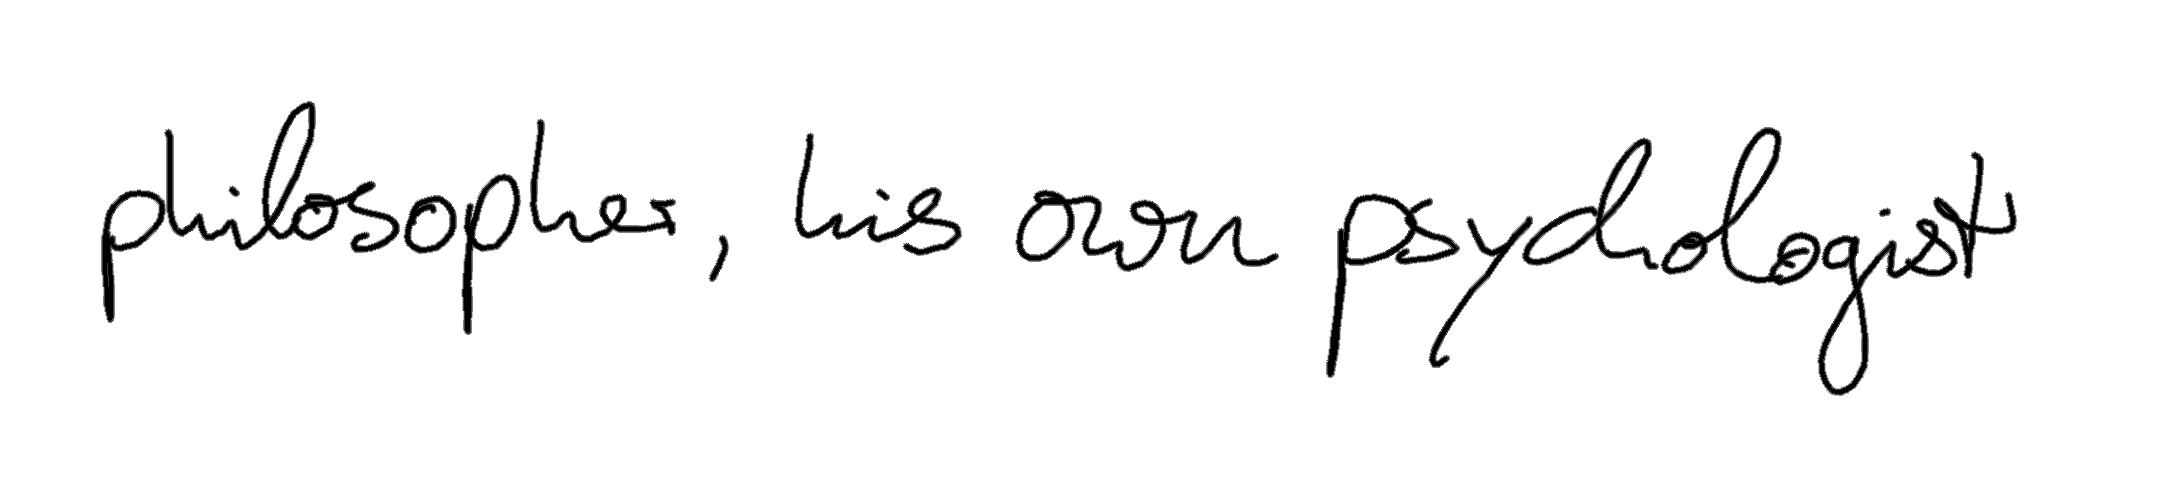 philosopher, his own psychologist